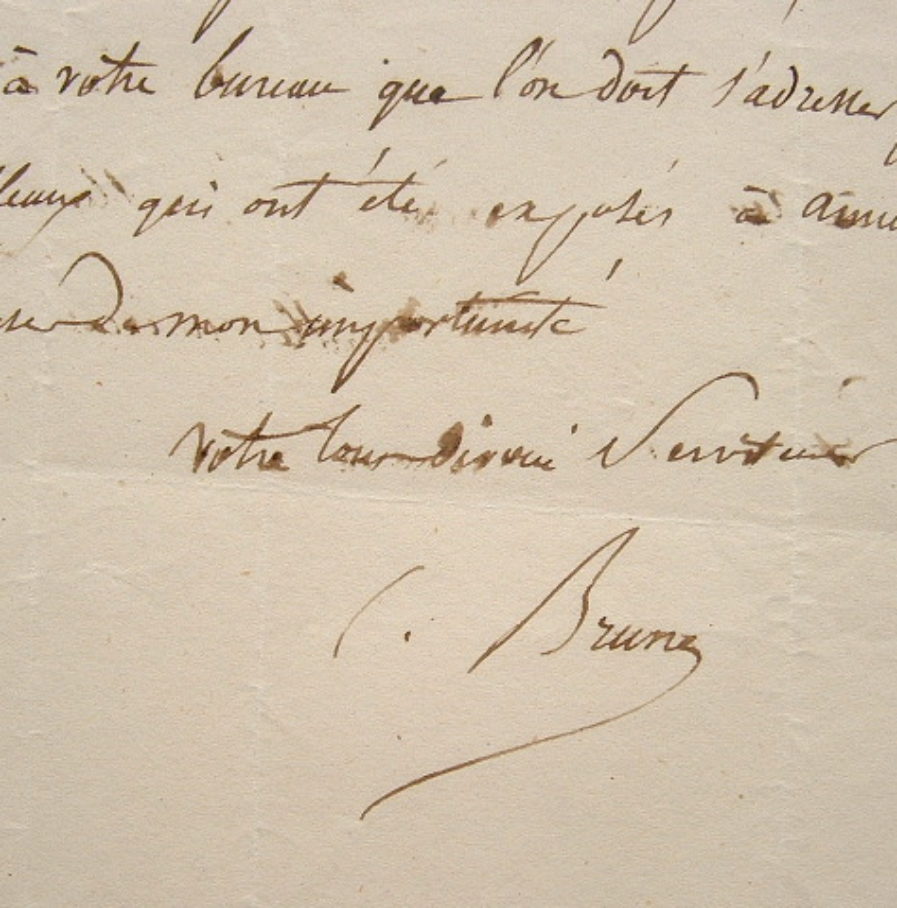 à votre bureau que l'on doit s'adresser
qui ont été exposés à
de mon importunité
votre tout dévoué Serviteur
C. Brune